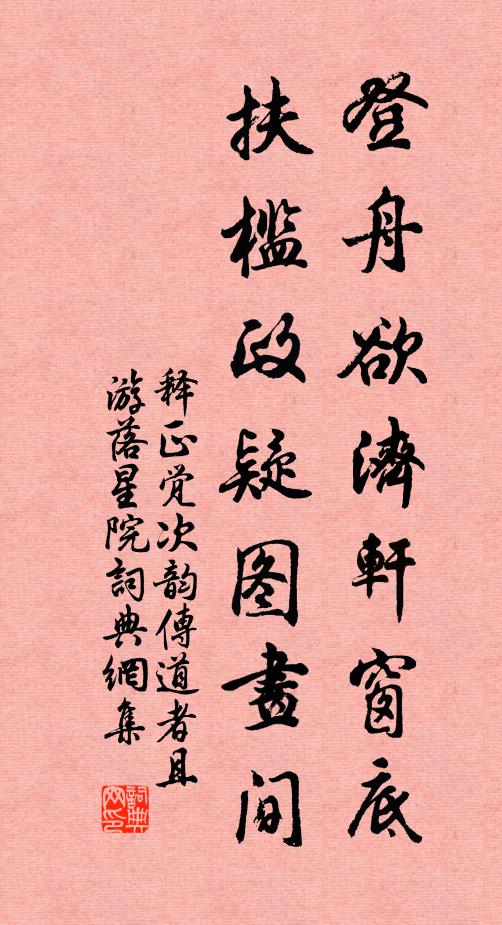 登舟欲濟軒窗底
扶槛政疑图畫间
释正觉次韵傳道者且
游落星院詞典網集
詞典网印